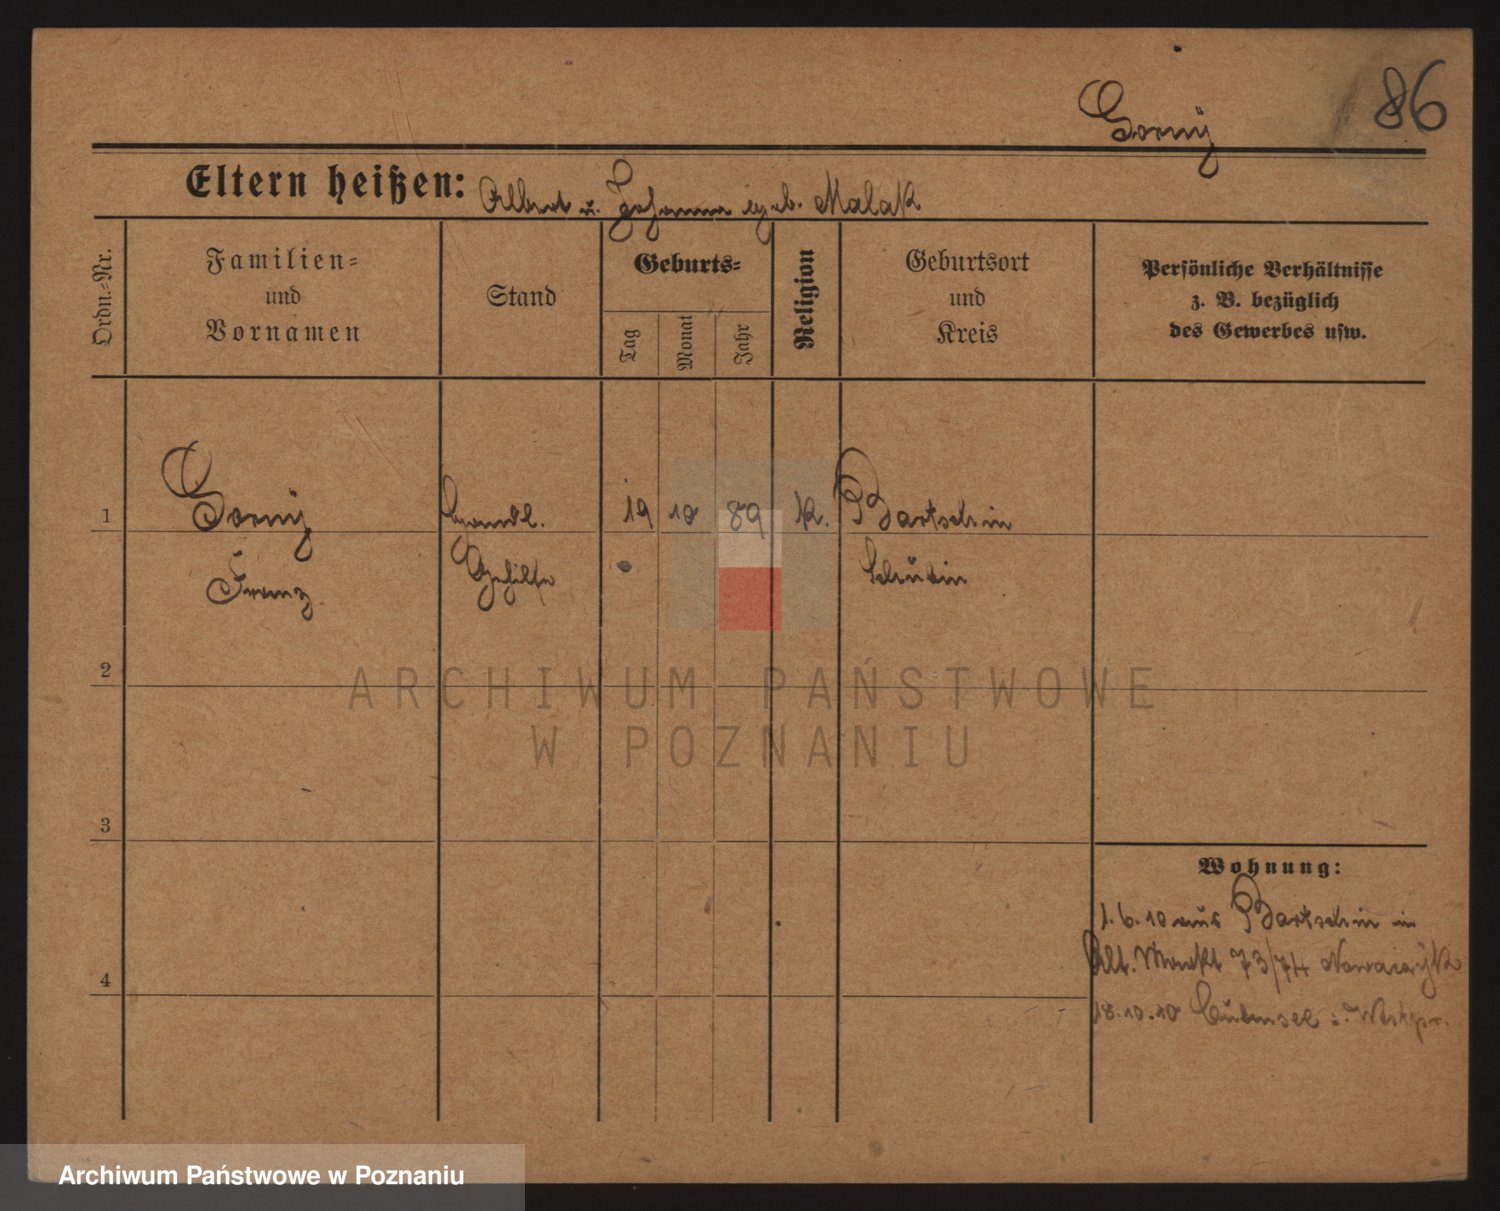 86
Gorny
Eltern heißen: Albert u. Johanna geb. Malak
Ordn.-Nr.
Familien-
und
Vornamen
Stand
Geburts-
Tag
Monat
Jahr
Religion
Geburtsort
und
Kreis
Persönliche Verhältnisse
z. B. bezüglich
des Gewerbes usw.
1 Gorny Handl. 19 10 89 K. Bartschin
Franz Gehilfe Schubin
2
3
4
Wohnung:
1.6.10 aus Bartschin in
Alt. Markt 73/74
18.10.10 i. Westpr.
ARCHIWUM PAŃSTWOWE
W POZNANIU
Archiwum Państwowe w Poznaniu